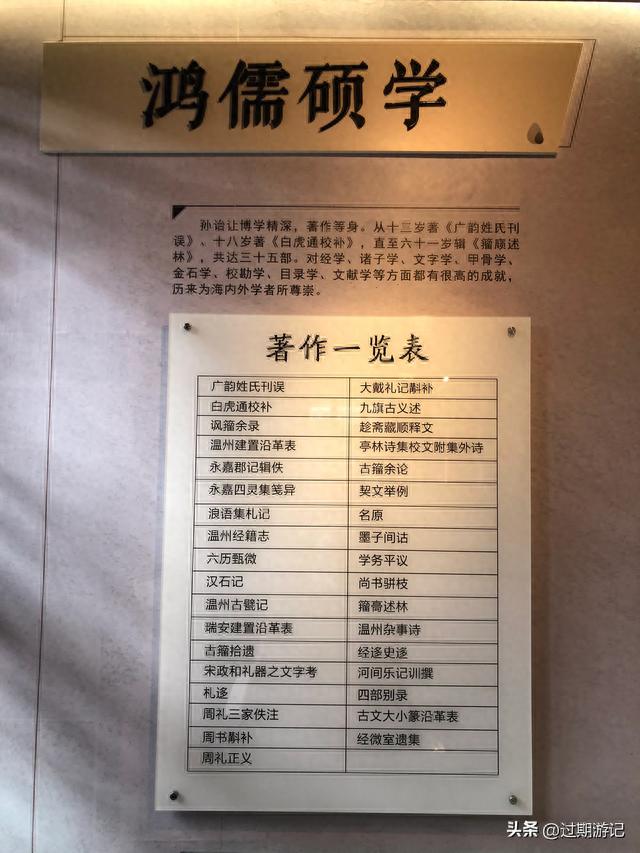 鸿儒硕学
孙诒让博学精深，著作等身。从十三岁著《广韵姓氏刊
误》、十八岁著《白虎通校补》，直至六十一岁辑《籀庼述
林》，共达三十五部。对经学、诸子学、文字学、甲骨学、
金石学、校勘学、目录学、文献学等方面都有很高的成就，
历来为海内外学者所尊崇。
著作一览表
广韵姓氏刊误 大戴礼记斠补
白虎通校补 九旗古义述
讽籀余录 趁斋藏顺释文
温州建置沿革表 亭林诗集校文附集外诗
永嘉郡记辑佚 古籀余论
永嘉四灵集笺异 契文举例
浪语集札记 名原
温州经籍志 墨子间诂
六历甄微 学务平议
汉石记 尚书骈枝
温州古甓记 籀膏述林
瑞安建置沿革表 温州杂事诗
古籀拾遗 经迻史迻
宋政和礼器之文字考 河间乐记训撰
札迻 四部别录
周礼三家佚注 古文大小篆沿革表
周书斠补 经微室遗集
周礼正义
头条 @过期游记